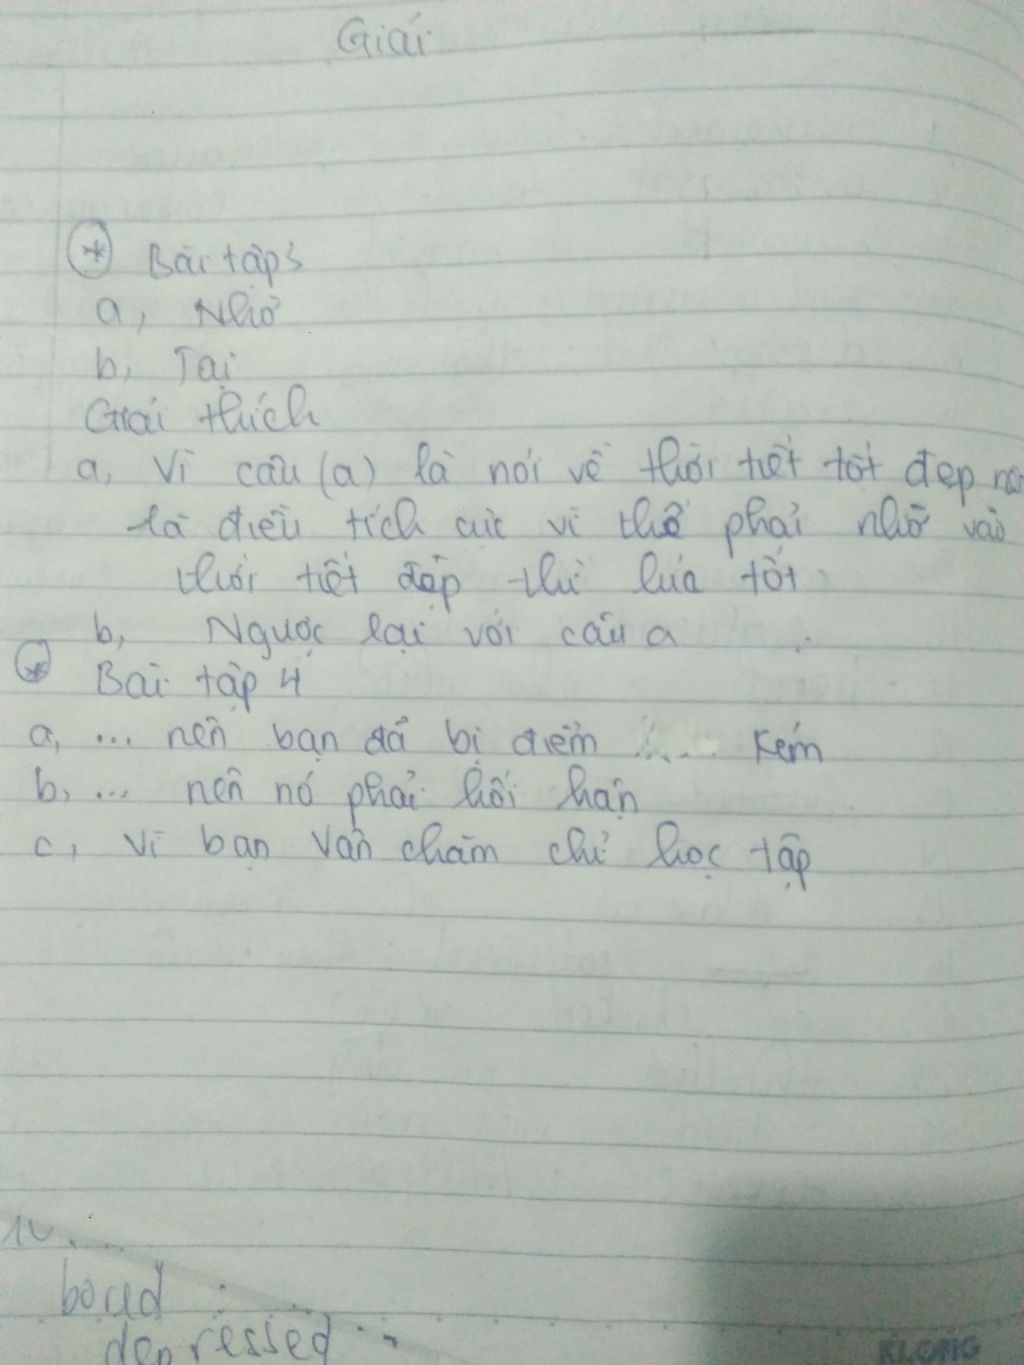 Giải
* Bài tập 3
a, Nhờ
b, Tại
Giải thích
a, Vì câu (a) là nói về thời tiết tốt đẹp nên
là điều tích cực vì thế phải nhờ vào
thời tiết đẹp thì lúa tốt
b, Ngược lại với câu a
* Bài tập 4
a, ... nên bạn đã bị điểm kém
b, ... nên nó phải hối hận
c, Vì bạn Vân chăm chỉ học tập
bored :
depressed :
KLONG